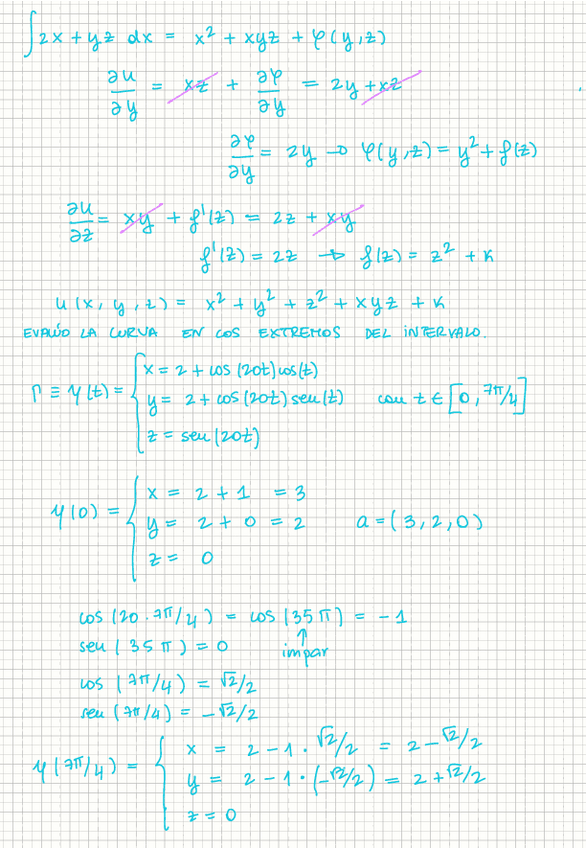 ∫ 2x + yz dx = x² + xyz + φ(y,z)
∂u/∂y = xz + ∂φ/∂y = 2y + xz
∂φ/∂y = 2y → φ(y,z) = y² + f(z)
∂u/∂z = xy + f'(z) = 2z + xy
f'(z) = 2z → f(z) = z² + K
u(x, y, z) = x² + y² + z² + xyz + K
EVALÚO LA CURVA EN LOS EXTREMOS DEL INTERVALO.
x = 2 + cos(20t)cos(t)
Γ ≡ γ(t) = { y = 2 + cos(20t) sen(t) con t ∈ [0, 7π/4]
z = sen(20t)
x = 2 + 1 = 3
γ(0) = { y = 2 + 0 = 2 a = (3, 2, 0)
z = 0
cos(20 · 7π/4) = cos(35π) = -1
sen(35π) = 0 ↑ impar
cos(7π/4) = √2/2
sen(7π/4) = -√2/2
x = 2 - 1 · √2/2 = 2 - √2/2
γ(7π/4) = { y = 2 - 1 · (-√2/2) = 2 + √2/2
z = 0